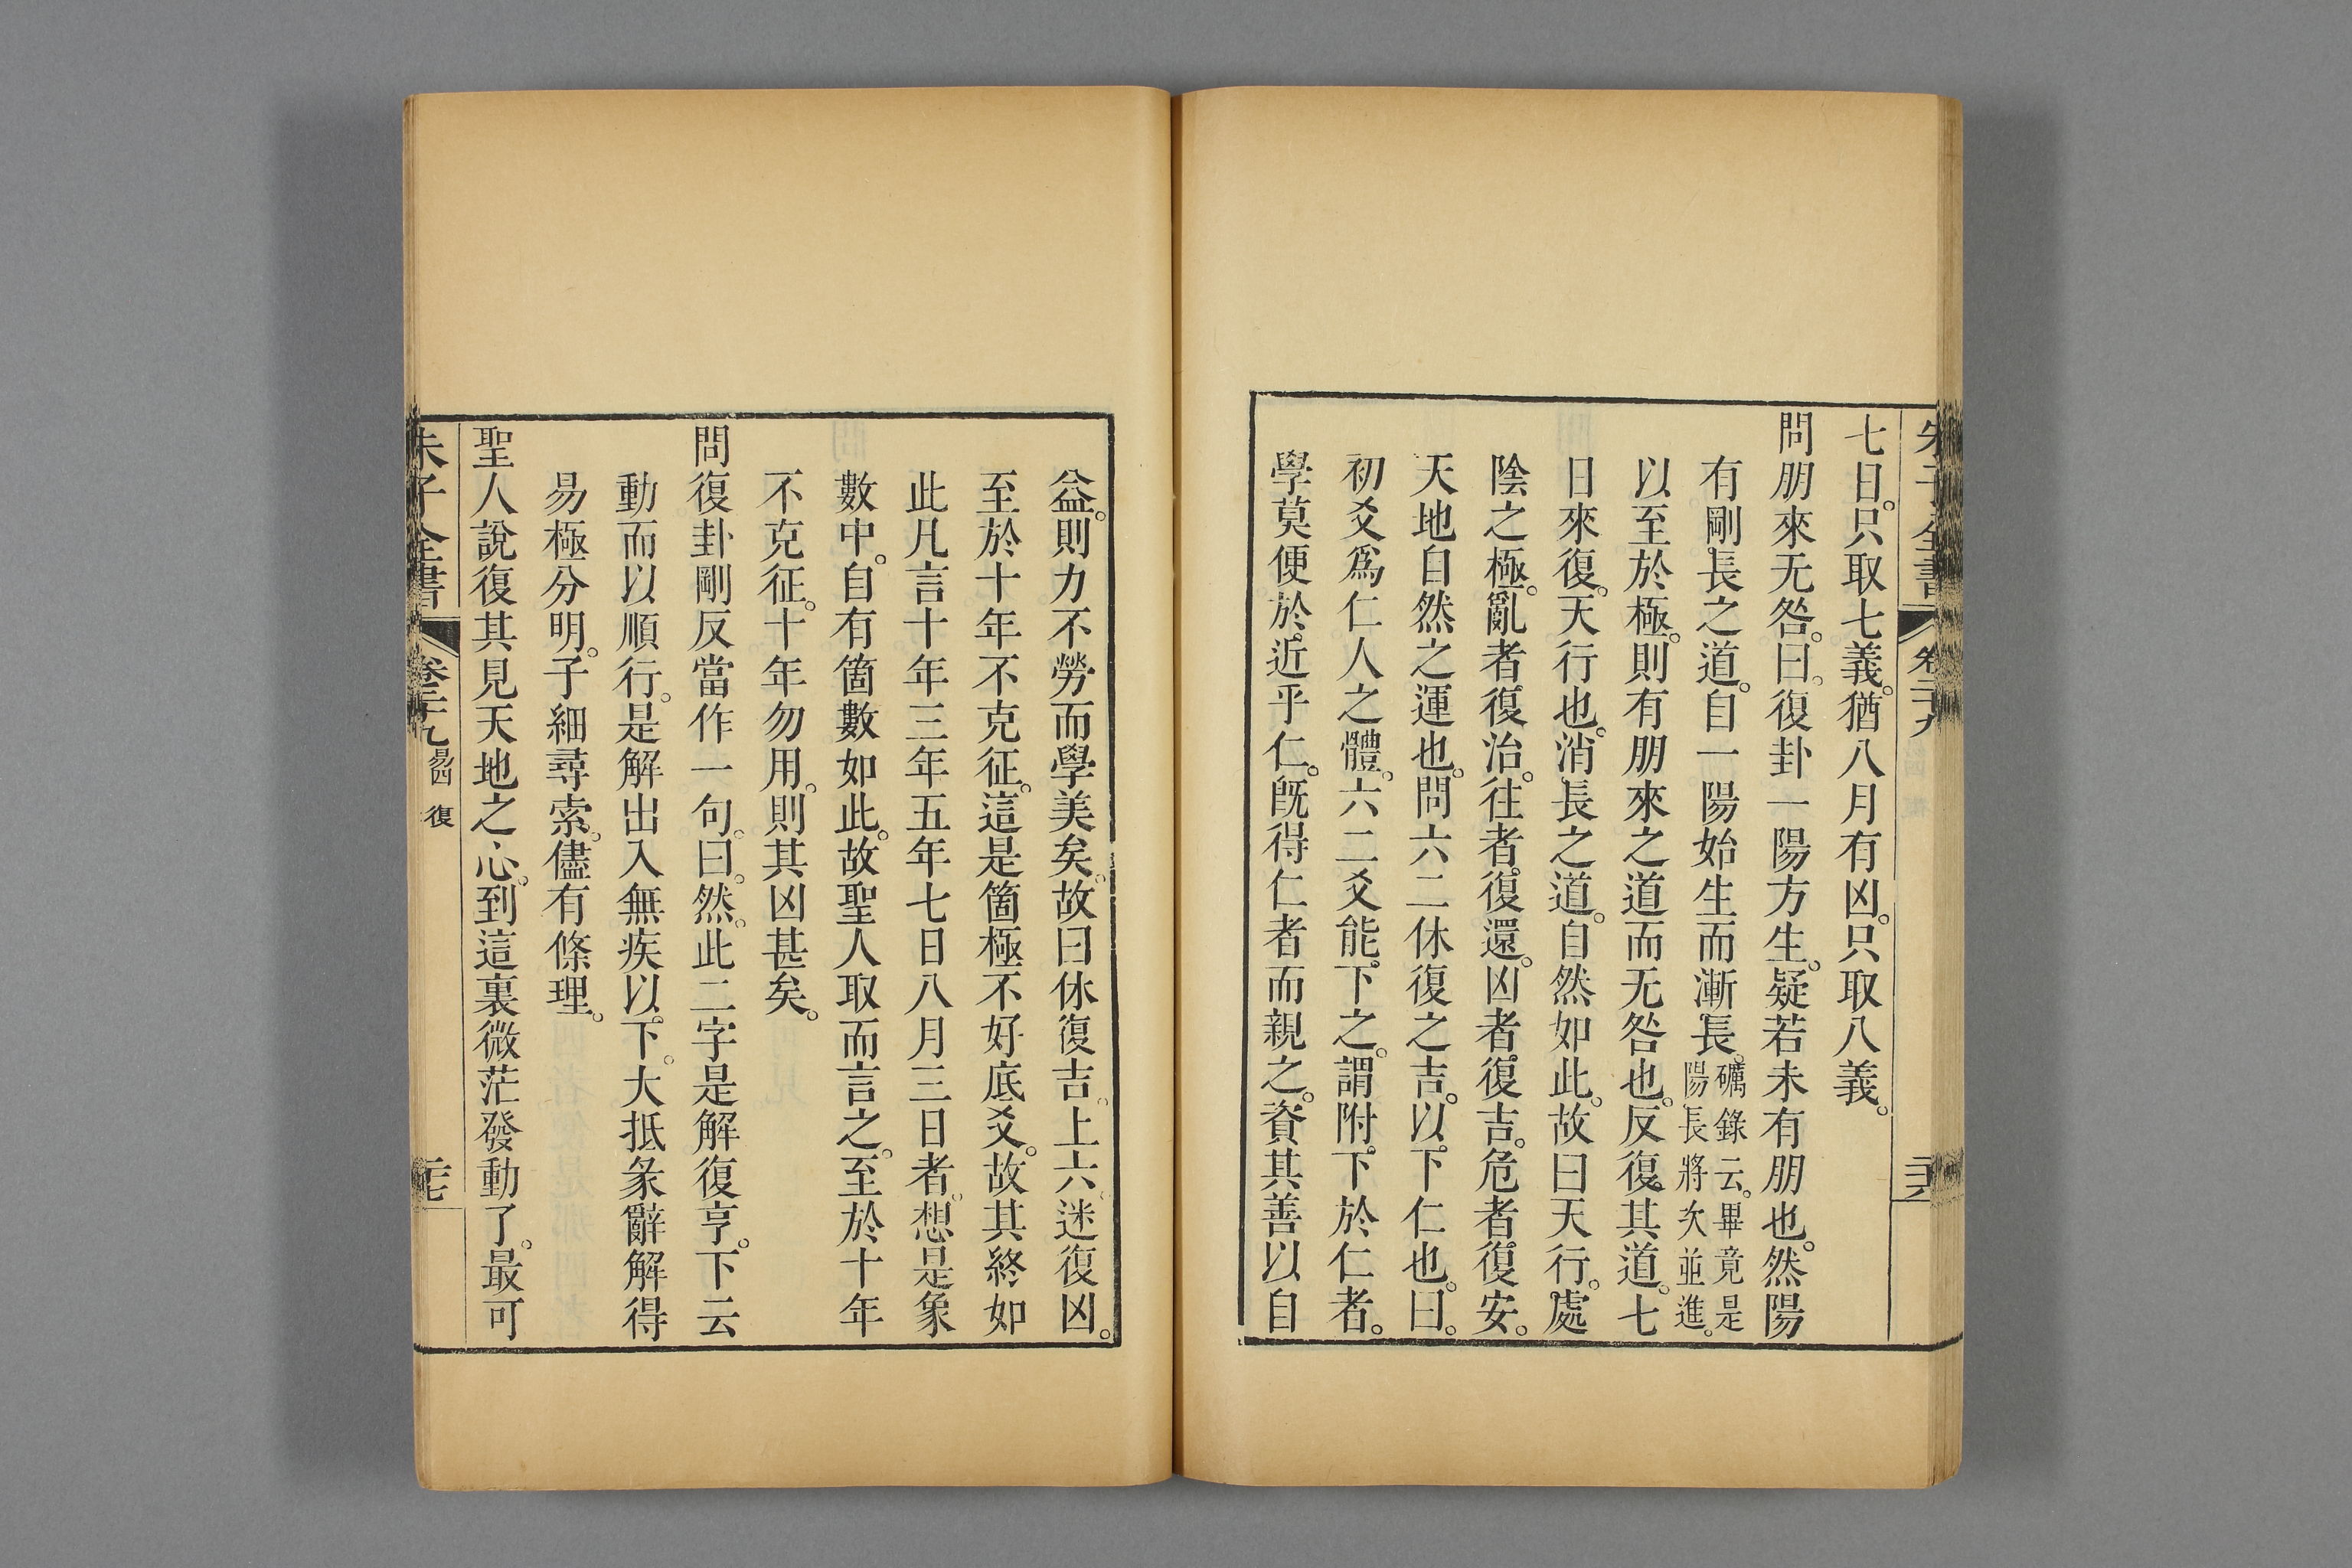 朱子全書 卷二十九
七日。只取七義。猶八月有凶。只取八義。
問朋來无咎。曰。復卦一陽方生。疑若未有朋也。然陽
有剛長之道。自一陽始生而漸長。礪錄云。畢竟是陽長將次並進。
以至於極。則有朋來之道而无咎也。反復其道。七
日來復。天行也。消長之道。自然如此。故曰天行。處
陰之極。亂者復治。往者復還。凶者復吉。危者復安。
天地自然之運也。問六二休復之吉。以下仁也。曰。
初爻爲仁人之體。六二爻能下之。謂附下於仁者。
學莫便於近乎仁。旣得仁者而親之。資其善以自
益。則力不勞而學美矣。故曰休復吉。上六迷復凶。
至於十年不克征。這是箇極不好底爻。故其終如
此。凡言十年三年五年七日八月三日者。想是象
數中。自有箇數如此。故聖人取而言之。至於十年
不克征。十年勿用。則其凶甚矣。
問復卦剛反當作一句。曰。然。此二字是解復亨。下云
動而以順行。是解出入無疾以下。大抵彖辭解得
易極分明。子細尋索。儘有條理。
聖人說復其見天地之心。到這裏微茫發動了。最可
朱子全書 卷二十九 易四 復 二十七